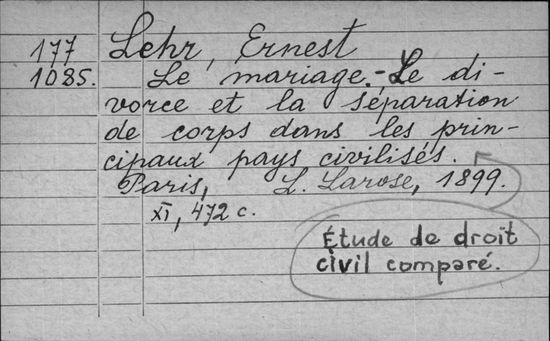 177 Lehr, Ernest
1085. Le mariage.-Le di-
vorce et la séparation
de corps dans les prin-
cipaux pays civilisés.
Paris, L. Larose, 1899.
XI, 472 c.
Étude de droit
civil comparé.